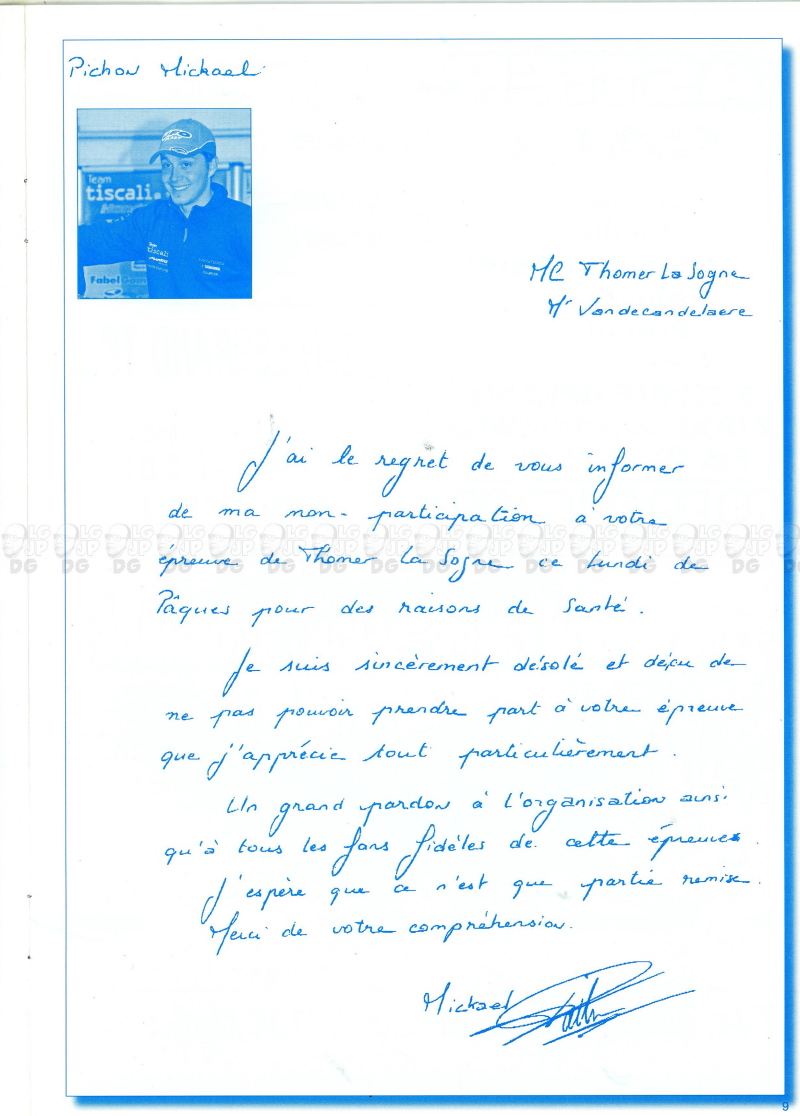 Pichon Mickael
Team
tiscali.
Team
tiscali
Fabel Com
MC Thomer La Sogne
Mr Vandecandelaere
J'ai le regret de vous informer
de ma non-participation à votre
épreuve de Thomer La Sogne ce Lundi de
Pâques pour des raisons de santé.
Je suis sincèrement désolé et déçu de
ne pas pouvoir prendre part à votre épreuve
que j'apprécie tout particulièrement.
Un grand pardon à l'organisation ainsi
qu'à tous les fans fidèles de cette épreuve.
J'espère que ce n'est que partie remise.
Merci de votre compréhension.
Mickael
LG JP DG
9